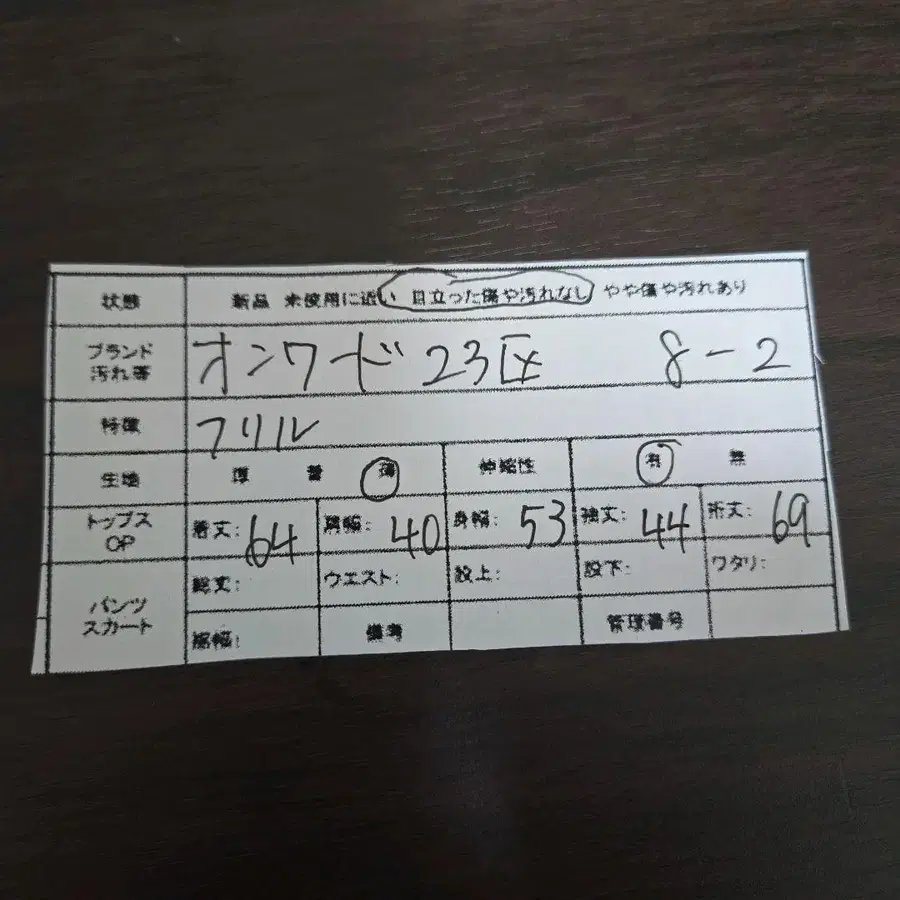 状態 新品 未使用に近い 目立った傷や汚れなし やや傷や汚れあり
ブランド オンワード 23区 8-2
汚れ等
特徴 フリル
生地 厚 普 薄 伸縮性 有 無
トップス 着丈:64 肩幅:40 身幅:53 袖丈:44 裄丈:69
OP
パンツ 総丈: ウエスト: 股上: 股下: ワタリ:
スカート
裾幅: 備考 管理番号